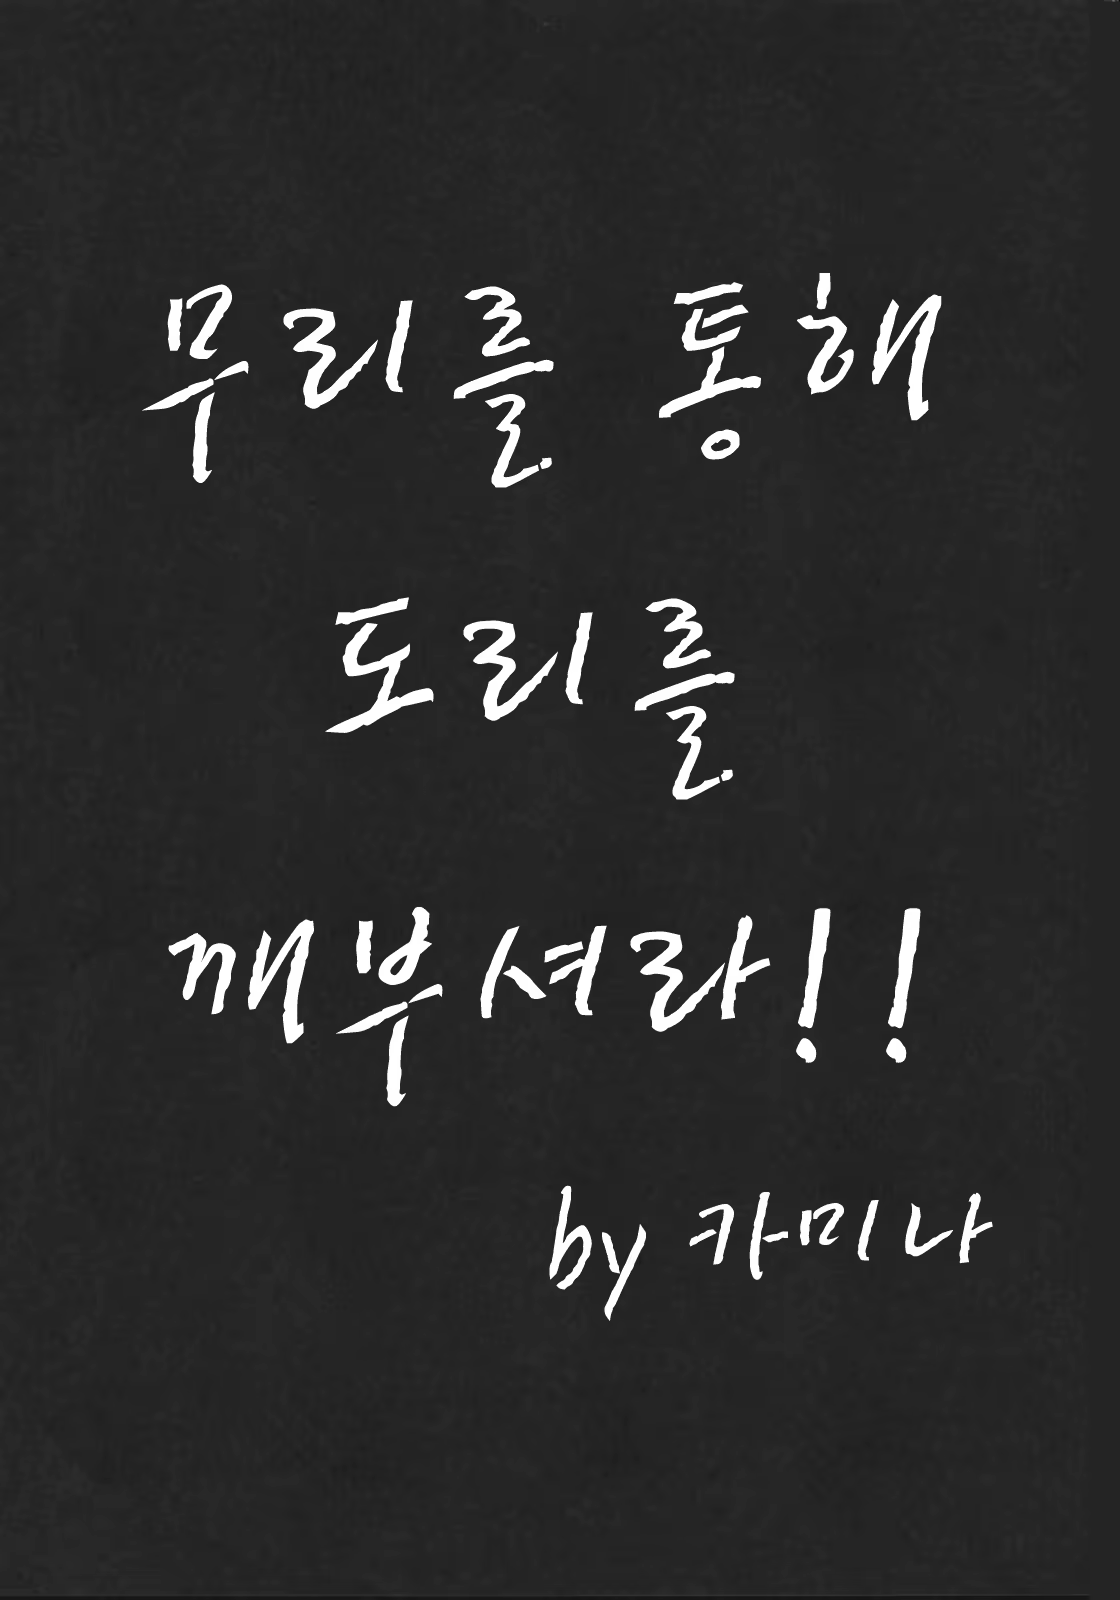 무리를 통해
도리를
깨부셔라!!
by 카미나